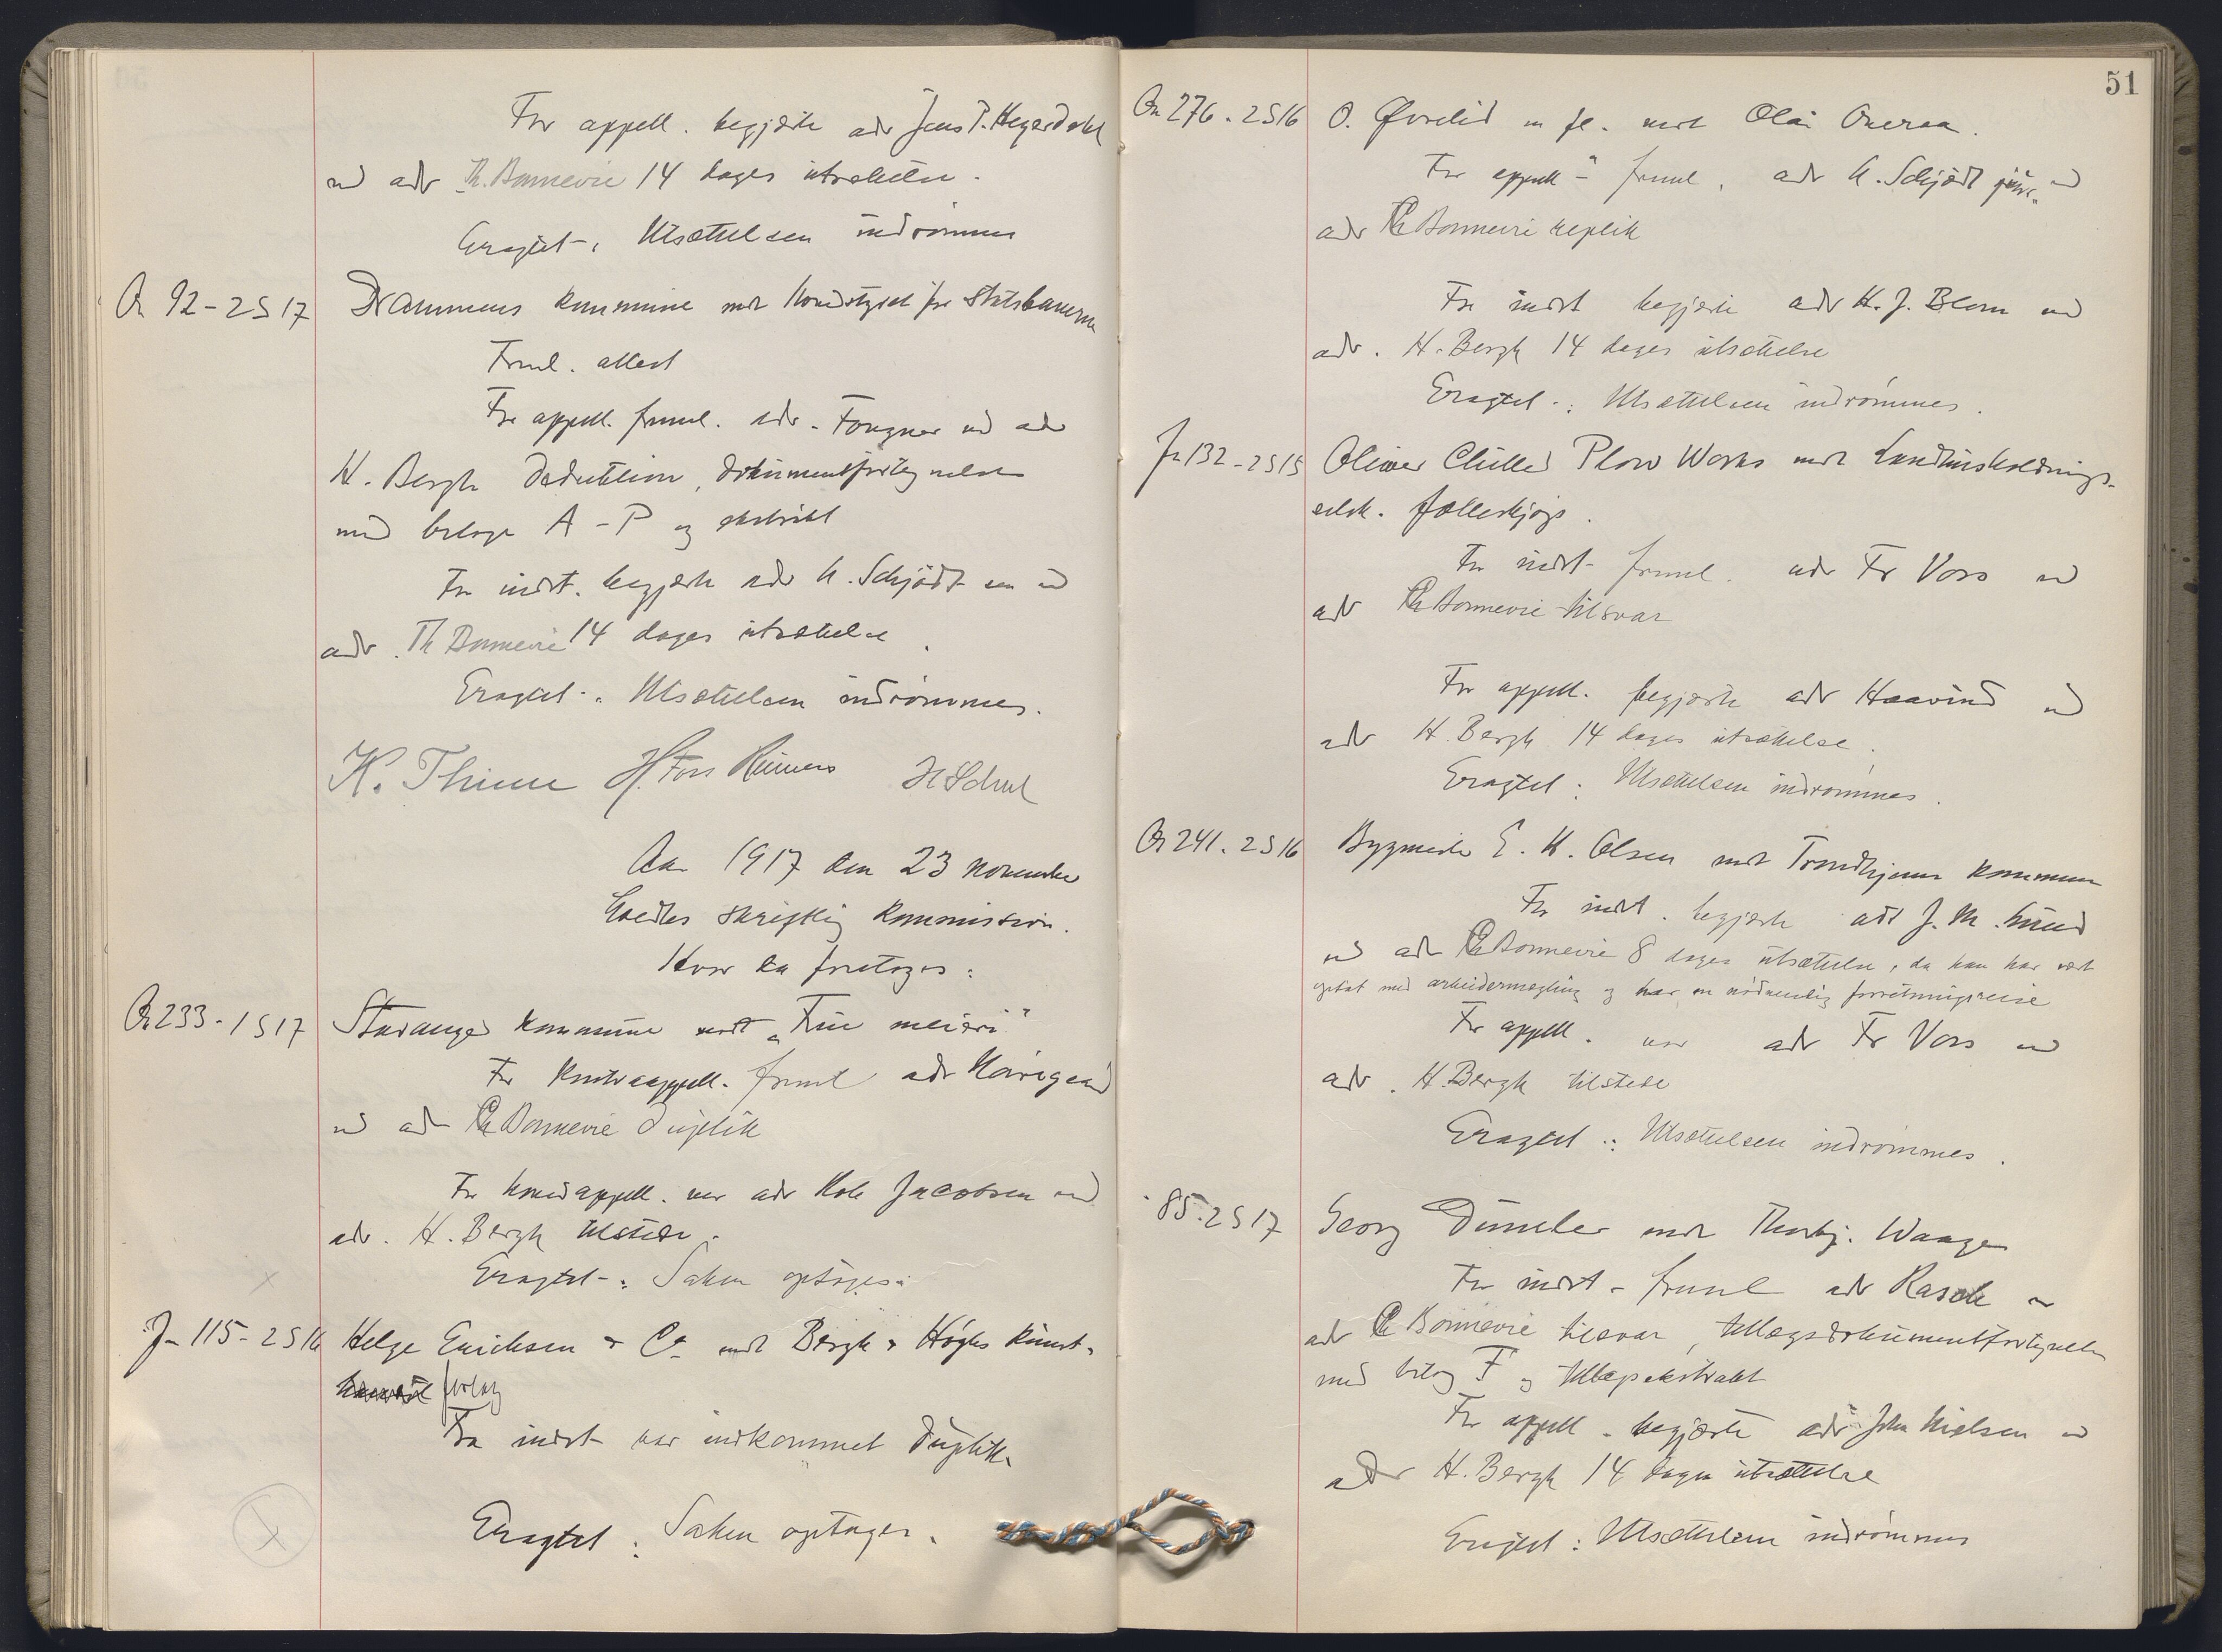 For appell. begjærte adv Jens P. Hegerdahl
ved adv Th. Bonnevie 14 dages utsættelse.
Eragtet: Utsættelsen indrömmes
Or 92-2S17 Drammens kommune mot Hovedstyret for Statsbanerne
Freml. attest
For appell. freml. adv. Fougner ved adv
H. Bergh deduktion, dokumentfortegnelse
med bilage A-P og ekstrakt
For indst. begjærte adv A. Schjödt sen ved
adv. Th Bonnevie 14 dages utsættelse.
Eragtet: Utsættelsen indrömmes.
K. Thinn H. Foss Reimers
Aar 1917 den 23 november
holdtes skriftlig kommission.
Hvor da foretoges:
Or 233-1S17 Stavanger kommune mot "Fru meieri"
For kontraappell. freml adv
ved adv Th Bonnevie duplik
For hovedappell. var adv Jacobsen ved
adv. H. Bergh tilstede.
Eragtet: Saken optages.
J- 115-2S16 Helge Erichsen & Co mot Bergh & Höghs kunst-
forlag
Fra indst var indkommet duplik.
Eragtet: Saken optages.
51
Or 276.2S16 O. Øvrelid m fl. mot Olai Oneraa.
For appell freml. adv A. Schjödt jun. ved
adv Th Bonnevie replik
For indst begjærte adv H. J. Blom ved
adv. H. Bergh 14 dages utsættelse
Eragtet: Utsættelsen indrömmes.
Jr 132-2S15 Oliver Chilled Plow Works mot Landhusholdnings-
selsk. fælleskjøp.
For indst freml. adv Fr Voss ved
adv Th Bonnevie tilsvar
For appell. begjærte adv Haavind ved
adv H. Bergh 14 dages utsættelse.
Eragtet: Utsættelsen indrömmes.
Or 241.2S16 Bygmester E. H. Olsen mot Trondhjems kommune
For indst. begjærte adv J. M. Lund
ved adv Th Bonnevie 8 dages utsættelse, da han har vært
optat med arbeidermægling og har en nödvendig forretningsreise
For appell. var adv Fr Voss ved
adv. H. Bergh tilstede
Eragtet: Utsættelsen indrömmes.
85.2S17 Georg mot Thorbj. Waage
For indst. freml adv Rasch ved
adv Th Bonnevie tilsvar, tillægsdokumentfortegnelse
med bilag F og tillægsekstrakt
For appell. begjærte adv John Nielsen ved
adv H. Bergh 14 dages utsættelse
Eragtet: Utsættelsen indrömmes